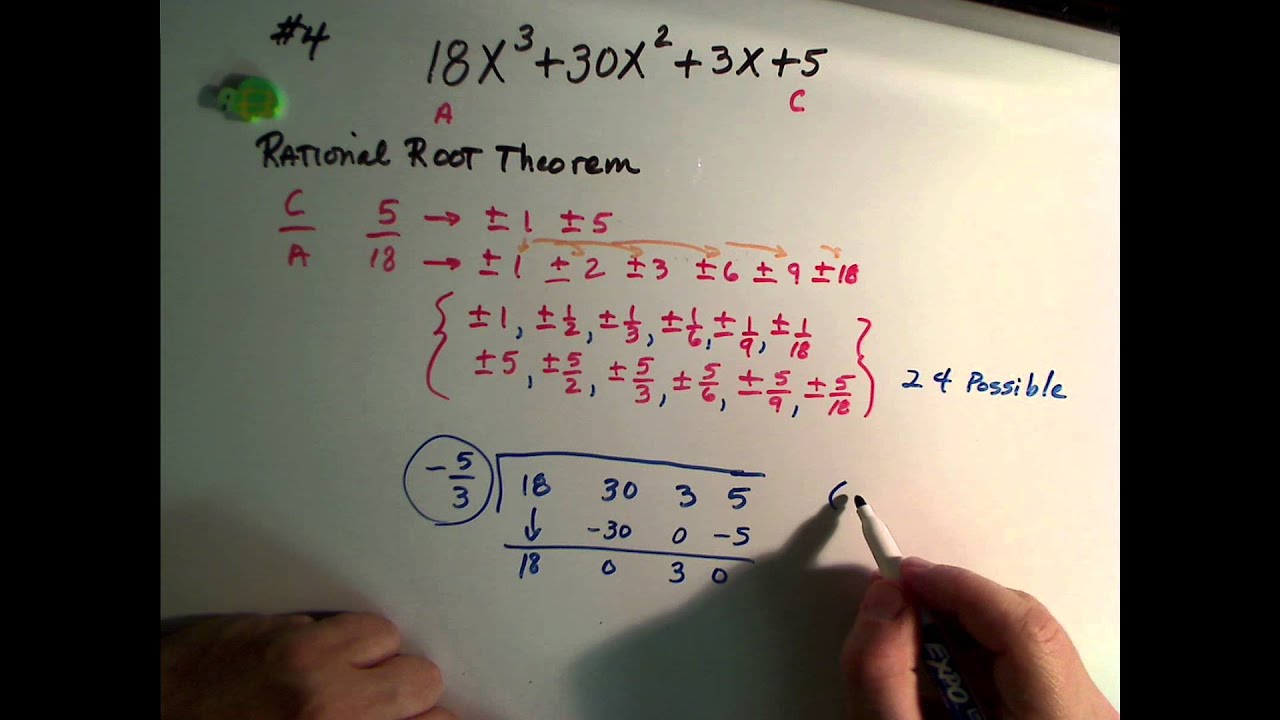 #4
18X³+30X²+3X+5
A C
RATional ROOT Theorem
C/A 5/18 → ±1 ±5
→ ±1 ±2 ±3 ±6 ±9 ±18
{ ±1, ±1/2, ±1/3, ±1/6, ±1/9, ±1/18
±5, ±5/2, ±5/3, ±5/6, ±5/9, ±5/18 } 24 Possible
-5/3 18 30 3 5 (
↓ -30 0 -5
18 0 3 0
EXPO